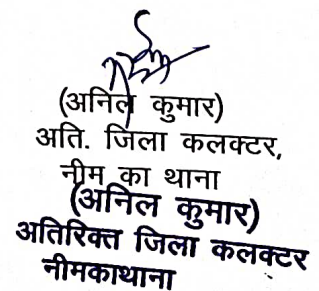 (अनिल कुमार)
अति. जिला कलक्टर,
नीम का थाना
(अनिल कुमार)
अतिरिक्त जिला कलक्टर
नीमकाथाना